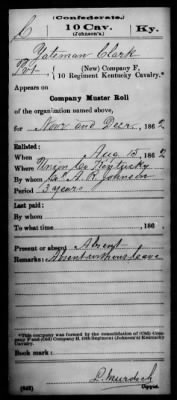 (Confederate.)
C 10 Cav. Ky.
(Johnson's.)
Yateman Clark
Pvt, (New) Company F,
10 Regiment Kentucky Cavalry.*
Appears on
Company Muster Roll
of the organization named above,
for Nov. and Dec., 1862
Enlisted:
When Aug 15, 1862
Where Union Co Kentucky
By whom Col A. R. Johnson
Period 3 years
Last paid:
By whom
To what time , 186 .
Present or absent Absent
Remarks: Absent without leave
*This company was formed by the consolidation of (Old) Company F and (Old) Company H, 10th Regiment (Johnson's) Kentucky Cavalry.
Book mark:
(642)
L. Murdoch
Copyist.